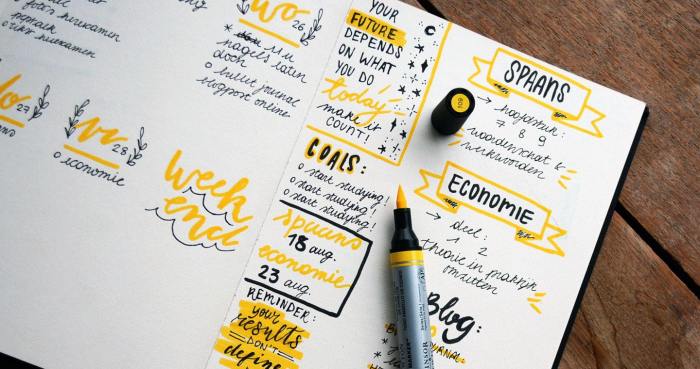 herexamen
o herexamen
WO
26
nagels laten
doen
o bullet journal
blogpost online
do
27
vr
28
o economie
week
end
YOUR
FUTURE
DEPENDS
ON WHAT
YOU DO
today
make it
COUNT!
GOALS:
o start studying!
o start studying!
o start studying!
spaans
18 aug.
economie
23 aug.
REMINDER:
your
results
DON'T
define
SPAANS
→ hoofdstuk:
7 8 9
woordenschat &
werkwoorden
ECONOMIE
→ deel:
1 2
theorie in praktijk
omzetten
Blog: